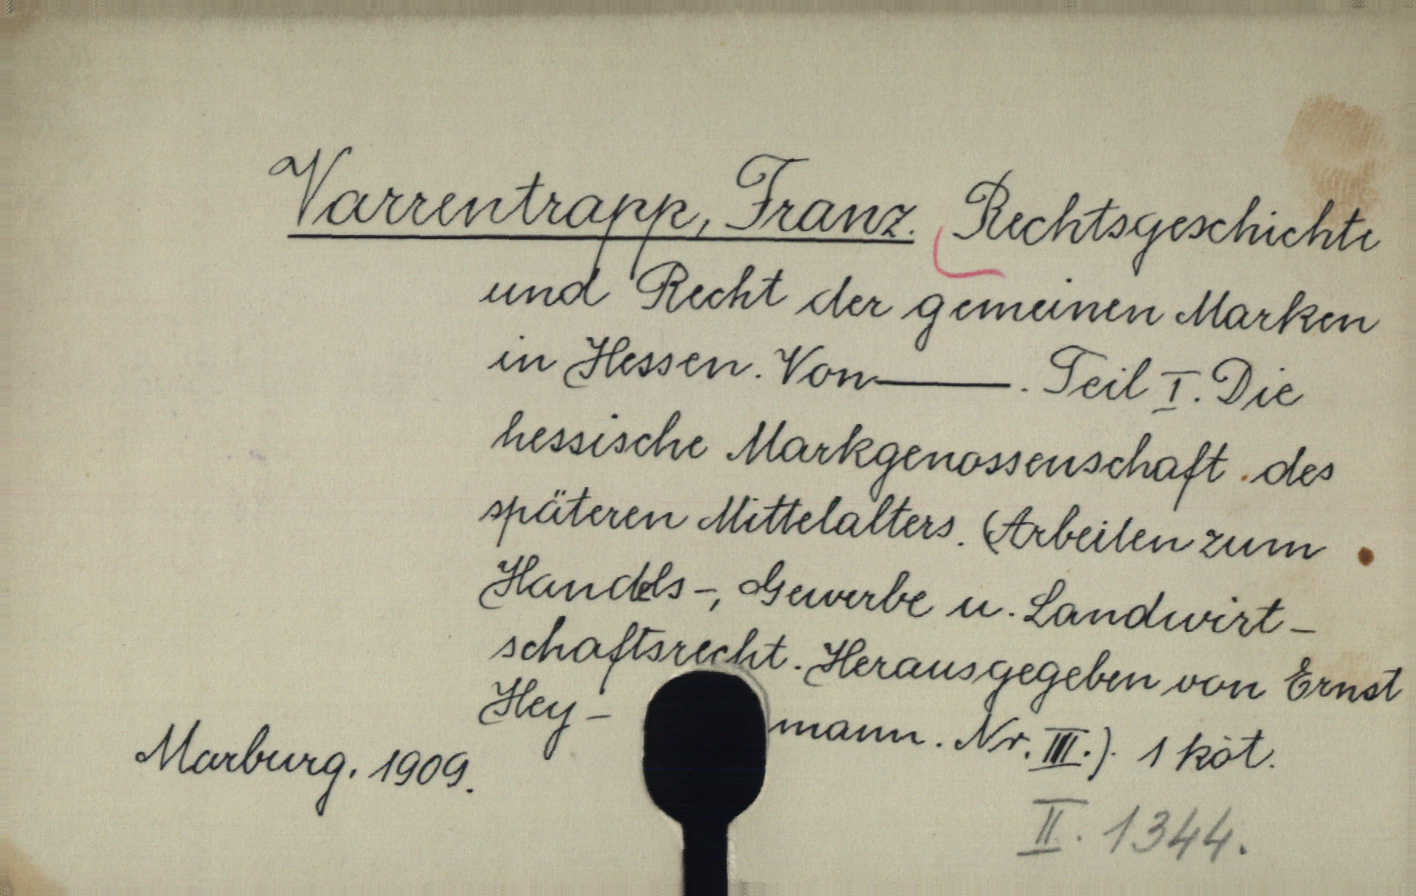 Varrentrapp, Franz. Rechtsgeschichte
und Recht der gemeinen Marken
in Hessen. Von ——. Teil I. Die
hessische Markgenossenschaft des
späteren Mittelalters. (Arbeiten zum
Handels-, Gewerbe u. Landwirt-
schaftsrecht. Herausgegeben von Ernst
Hey- mann. Nr. III.). 1 köt.
Marburg. 1909.
II. 1344.